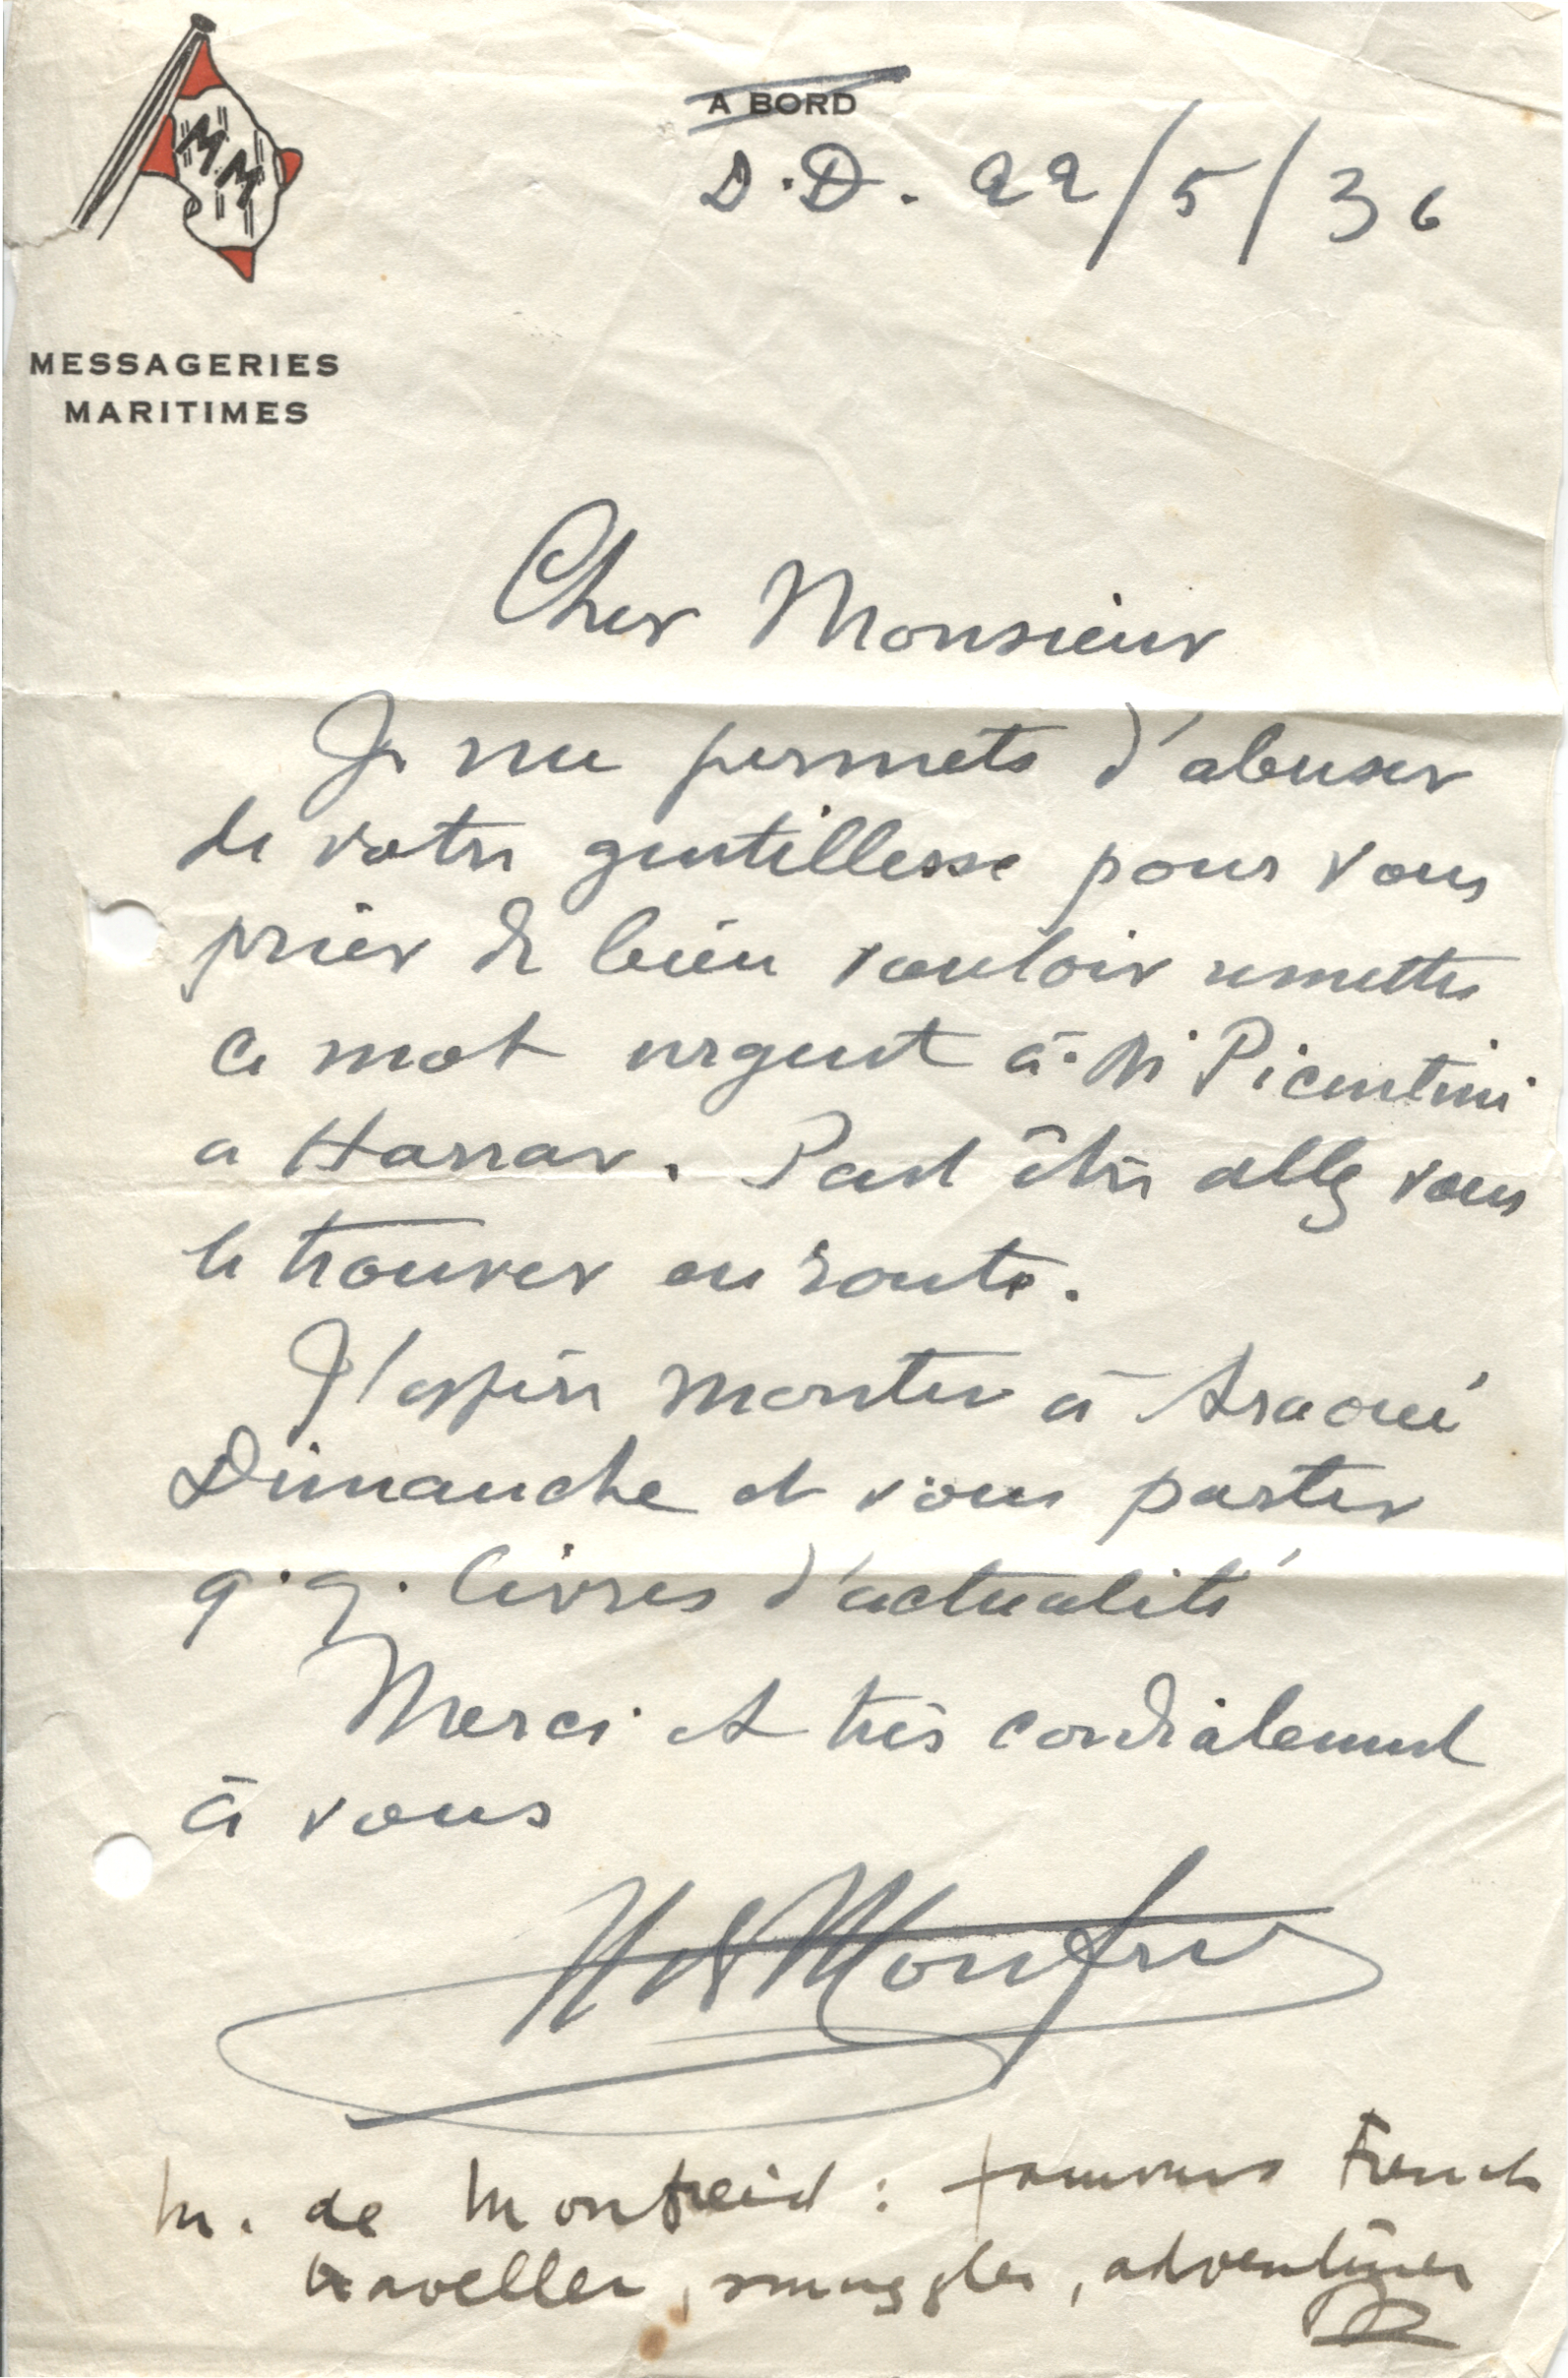 MM
A BORD
D.D. 22/5/36
MESSAGERIES
MARITIMES
Cher Monsieur
Je me permets d'abuser
de votre gentillesse pour vous
prier de bien vouloir remettre
ce mot urgent à Mr Picentini
a Harrar. Peut être allez vous
le trouver en route.
J'espère monter à Araoué
Dimanche et vous porter
q.q. livres d'actualité
Merci et très cordialement
à vous
H de Monfreid
M. de Monfreid : famous French
traveller, smuggler, adventurer